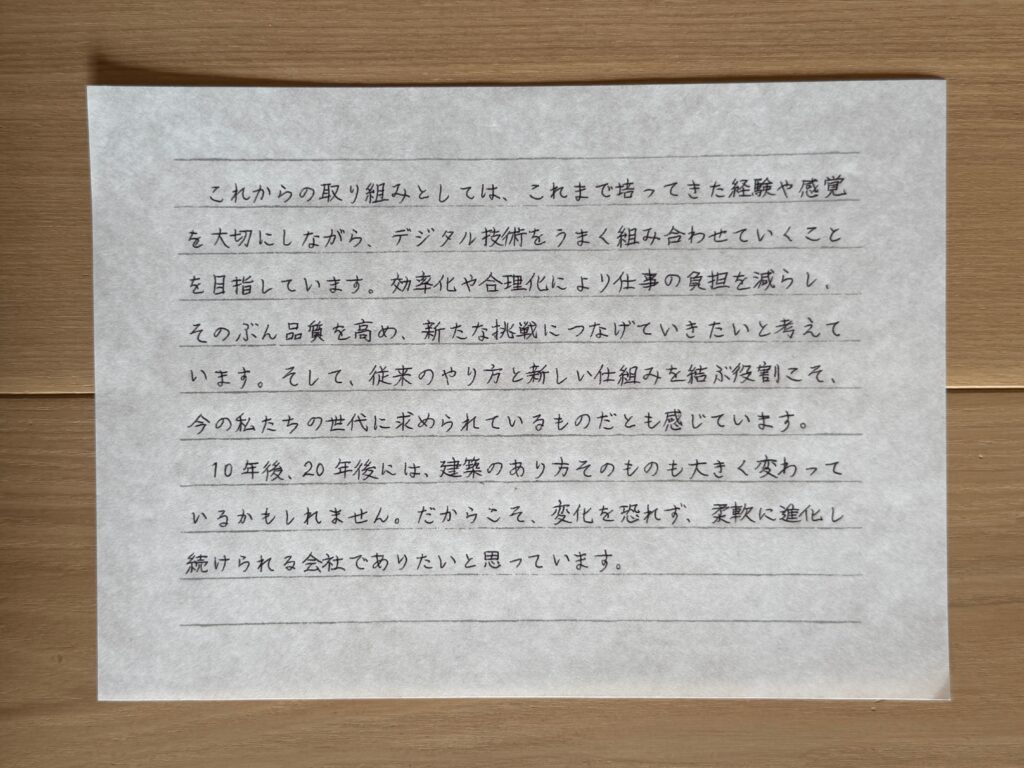 これからの取り組みとしては、これまで培ってきた経験や感覚
を大切にしながら、デジタル技術をうまく組み合わせていくこと
を目指しています。効率化や合理化により仕事の負担を減らし、
そのぶん品質を高め、新たな挑戦につなげていきたいと考えて
います。そして、従来のやり方と新しい仕組みを結ぶ役割こそ、
今の私たちの世代に求められているものだとも感じています。
10年後、20年後には、建築のあり方そのものも大きく変わって
いるかもしれません。だからこそ、変化を恐れず、柔軟に進化し
続けられる会社でありたいと思っています。